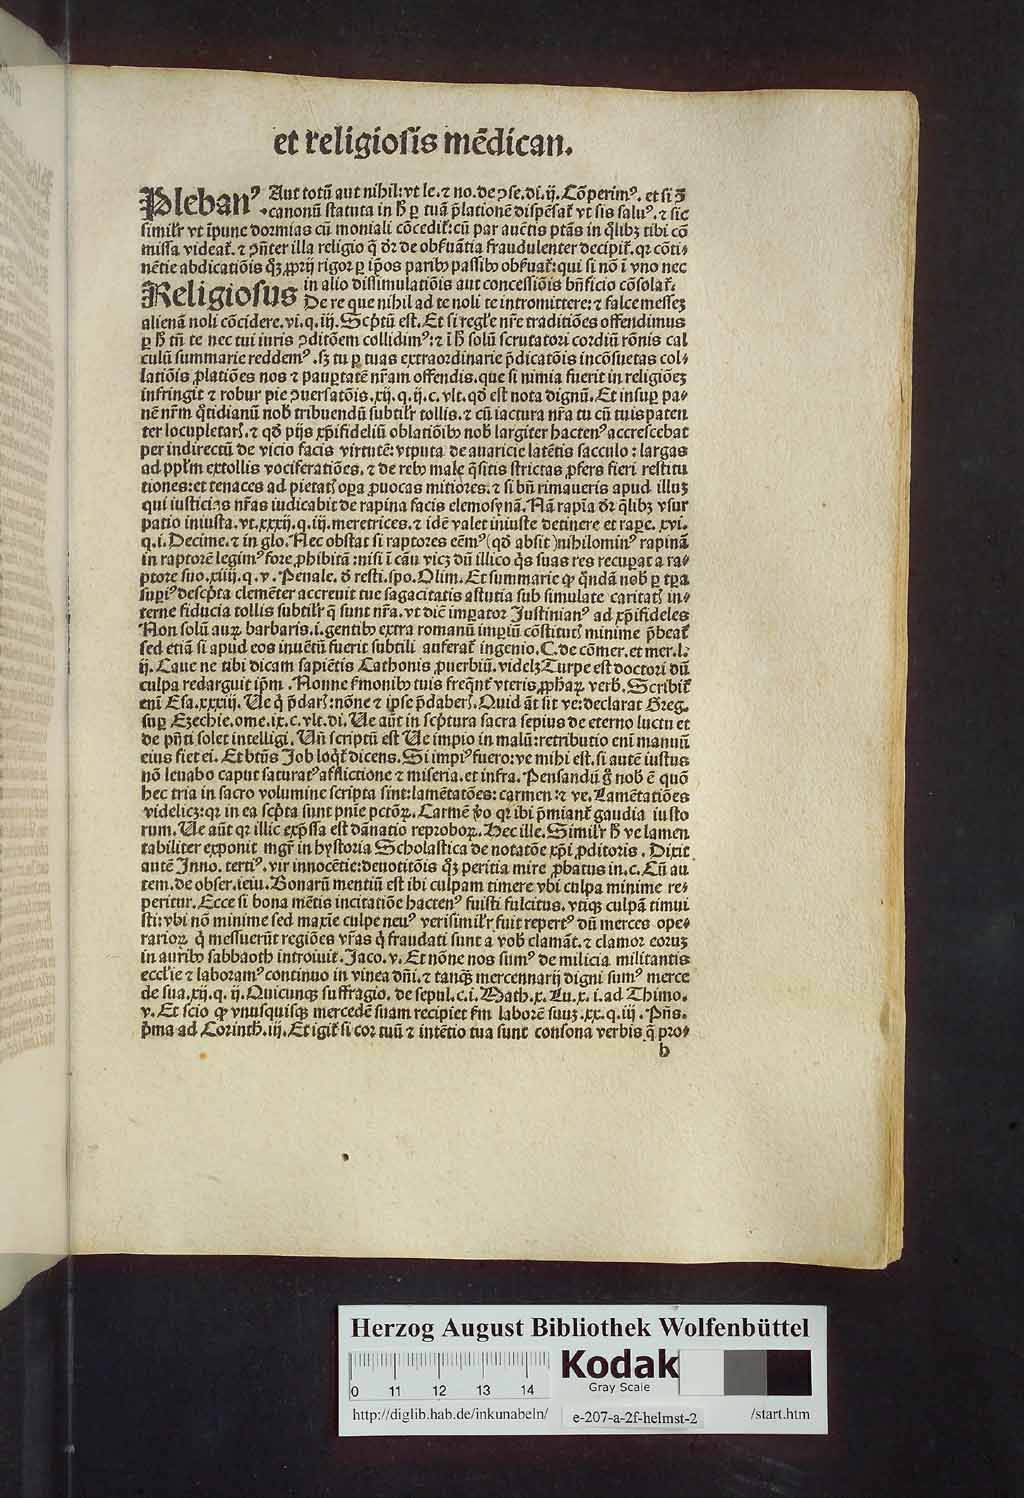 et religiosis mēdican.
Plebanꝰ Aut totū aut nihil: vt le. ⁊ no. de ꝯse. di. ij. Cōperimꝰ. et si ꝫ
canonū statuta in ħ ꝑ tuā p̄lationē dispēsat vt sis saluꝰ. ⁊ sic
simil'r vt īpune dormias cū moniali cōcedit: cū par auētis ptās in q̄libꝫ tibi cō
missa videat. ⁊ ꝯn̄ter illa religio q̄ dr̄ de obſuātia fraudulenter decipit. qꝛ cōti⸗
nētie abdicatiōis qꝫ ꝓprij rigor ꝑ ip̄os paribꝰ passibꝰ obſuat: qui si nō ī vno nec
in alio dissimulatiōis aut concessiōis bn̄ficio cōsolat.
Religiosus De re que nihil ad te noli te intromittere: ⁊ falce messeꝫ
alienā noli cōcidere. vi. q. iij. Scp̄tū est. Et si regl'e nr̄e traditiōes offendimus
ꝑ ħ tn̄ te nec tui iuris ꝯditōem collidimꝰ: ⁊ ī ħ solū scrutatori cordiū rōnis cal
culū summarie reddemꝰ. sꝫ tu ꝑ tuas extraordinarie p̄dicatōis incōsuetas col⸗
latiōis ꝓlatiōes nos ⁊ pauꝑtatē nr̄am offendis. que si nimia fuerit in religiōeꝫ
infringit ⁊ robur pie ꝯuersatōis. xij. q. ij. c. vlt. qđ est nota dignū. Et insuꝑ pa⸗
nē nr̄m q̄tidianū nob̄ tribuendū subtil'r tollis. ⁊ cū iactura nr̄a tu cū tuis paten
ter locupletarꝭ. ⁊ qđ pijs xp̄ifideliū oblatiōibꝰ nob̄ largiter hactenꝰ accrescebat
per indirectū de vicio facis virtutē: vtputa de auaricie latētis sacculo: largas
ad pp̄l'm extollis vociferatiōes. ⁊ de rebꝰ male q̄sitis strictas ꝓfers fieri restitu
tiones: et tenaces ad pietatꝭ oꝑa ꝓuocas mitiores. ⁊ si bn̄ rimaueris apud illuꝫ
qui iusticias nr̄as iudicabit de rapina facis elemosynā. Nā rapīa dr̄ q̄libꝫ vsur
patio iniusta. vt. xxxij. q. iij. meretrices. ⁊ idē valet iniuste detinere et raꝑe. xvi.
q. i. Decime. ⁊ in glo. Nec obstat si raptores eēmꝰ (qđ absit) nihilominꝰ rapinā
in raptorē legimꝰ fore ꝓhibitā: nisi ī cāu vicꝫ dū illico q̄s suas res recuꝑat a ra⸗
ptore suo. xiiij. q. v. Penale. đ resti. spo. Olim. Et summarie ꝙ q̄ndā nob̄ ꝑ tꝑa
suꝑiꝰ descp̄ta clemēter accreuit tue sagacitatis astutia sub simulate caritatꝭ in⸗
terne fiducia tollis subtil'r q̄ sunt nr̄a. vt dic̄ imꝑator Justinianꝰ ad xp̄ifideles
Non solū auꝝ barbaris. i. gentibꝰ extra romanū imꝑiū cōstitutꝭ minime p̄beat
sed etiā si apud eos inuētū fuerit subtili auferat ingenio. C. de cōmer. et mer. l.
ij. Caue ne tibi dicam sapiētis Cathonis ꝓuerbiū. videlꝫ Turpe est doctori dū
culpa redarguit ip̄m. Nonne ſmonibꝰ tuis freq̄nt̄ vteris ꝓph̄aꝝ verb̄. Scribit
enī Esa. xxxiij. Ve q̄ p̄darꝭ: nōne ⁊ ip̄e p̄daberꝭ. Quid āt sit ve: declarat Greg.
suꝑ Ezechie. ome. ix. c. vlt. di. Ve aūt in scp̄tura sacra sepius de eterno luctu et
de pn̄ti solet intelligi. Vn̄ scriptū est Ve impio in malū: retributio enī manuū
eius fiet ei. Et btūs Job loqt̄ dicens. Si impiꝰ fuero: ve mihi est. si autē iustus
nō leuabo caput saturatꝰ afflictione ⁊ miseria. et infra. Pensandū g̊ nob̄ ē quō
hec tria in sacro volumine scripta sint: lamētatōes: carmen: ⁊ ve. Lamētatiōes
videlicꝫ: qꝛ in ea scp̄ta sunt pn̄ie pctōꝝ. Carmē v̄o qꝛ ibi p̄miant gaudia iusto
rum. Ve aūt qꝛ illic exp̄ssa est dānatio reproboꝝ. Hec ille. Simil'r ħ ve lamen
tabiliter exponit mgr̄ in hystoria Scholastica de notatōe xp̄i ꝓditoris. Dixit
autē Inno. tertiꝰ. vir innocētie: deuotitōis qꝫ peritia mire ꝓbatus in. c. Cū au
tem. de obser. ieiu. Bonarū mentiū est ibi culpam timere vbi culpa minime re⸗
peritur. Ecce si bona mētis incitatiōe hactenꝰ fuisti fulcitus. vtiqꝫ culpā timui
sti: vbi nō minime sed maxīe culpe neuꝰ verisimil'r fuit repertꝰ dū merces ope⸗
rarioꝝ q̄ messuerūt regiōes vr̄as q̄ fraudati sunt a vob̄ clamāt. ⁊ clamor eoruꝫ
in auribꝰ sabbaoth introiuit. Jaco. v. Et nōne nos sumꝰ de milicia militantis
eccl'ie ⁊ laboramꝰ continuo in vinea dn̄i. ⁊ tanqꝫ mercennarij digni sumꝰ merce
de sua. xij. q. ij. Quicunqꝫ suffragio. de sepul. c. i. Math. x. Lu. x. i. ad Thimo.
v. Et scio ꝙ vnusquisqꝫ mercedē suam recipiet ſm laborē suuꝫ. xx. q. iij. Pn̄s.
p̄ma ad Corinth. iij. Et igit̄ si cor tuū ⁊ intētio tua sunt consona verbis q̄ pro⸗
b
Herzog August Bibliothek Wolfenbüttel
0 11 12 13 14
Kodak
Gray Scale
http://diglib.hab.de/inkunabeln/ e-207-a-2f-helmst-2 /start.htm